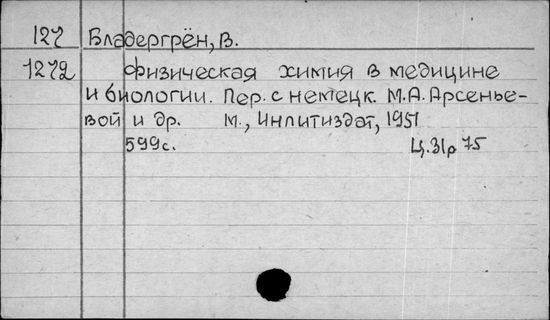 127 Владергрён, В.
1272 Физическая химия в медицине
и биологии. Пер. с немецк. М.А. Арсенье-
вой и др. М., Инлитиздат, 1951
599с. Ц. 31р 75